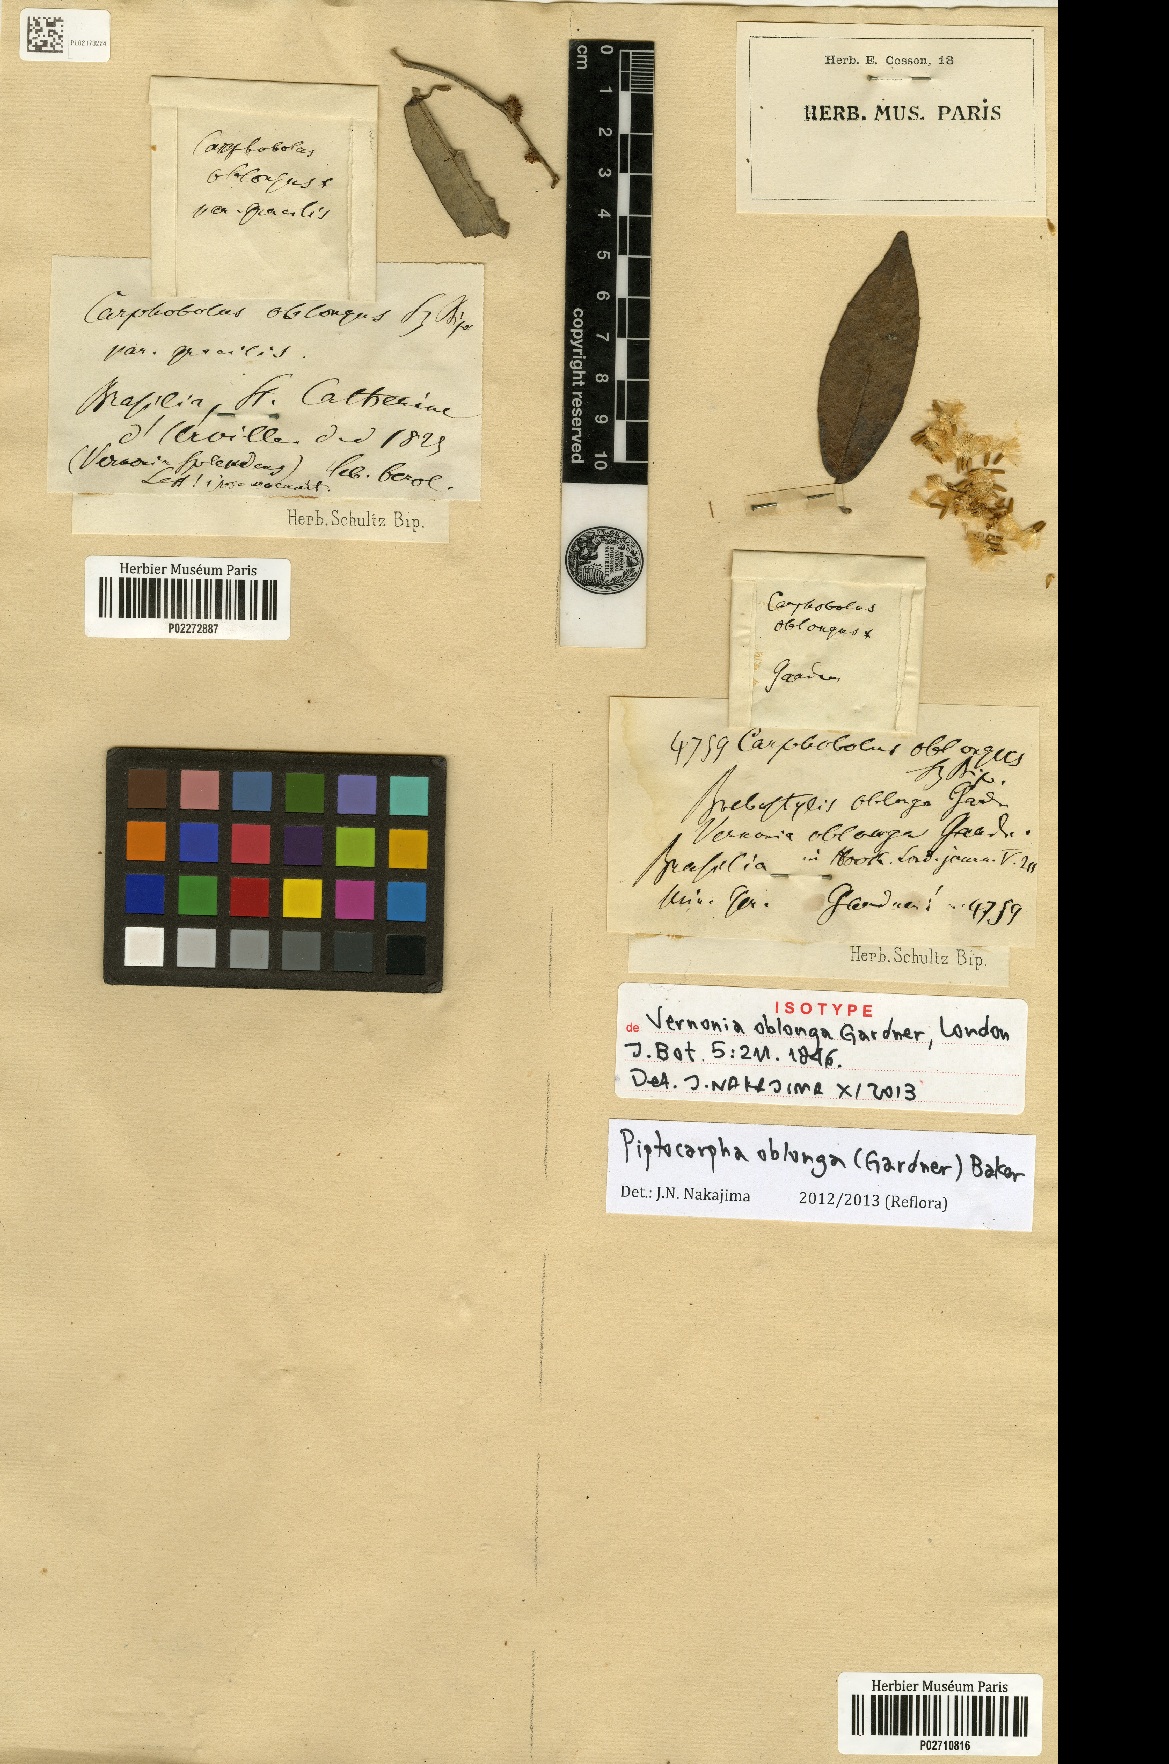 Herb. E. Cosson, 18
HERB. MUS. PARIS
Carphobolus
oblongus
var. gracilis
Carphobolus oblongus Sz Bip
var. gracilis.
Brasilia, St. Catherine
d'Urville ded 1825
(Vernonia splendens)
Less!
hb. berol.
Herb. Schultz Bip.
Herbier Muséum Paris
P02272887
cm
0
1
2
3
4
5
6
7
8
9
10
copyright reserved
Carphobolus
oblongus
Gardn
4759 Carphobolus oblongus
Sz Bip.
oblonga Gardn
Vernonia oblonga Gardn.
Brasilia in Hook. Lond. journ. V. 211
Min. Ger. Gardner! n. 4759
Herb. Schultz Bip.
ISOTYPE
de Vernonia oblonga Gardner, London
J. Bot. 5:211. 1846.
Det. J. NAKAJIMA XI/2013
Piptocarpha oblonga (Gardner) Baker
Det.: J.N. Nakajima 2012/2013 (Reflora)
Herbier Muséum Paris
P02710816